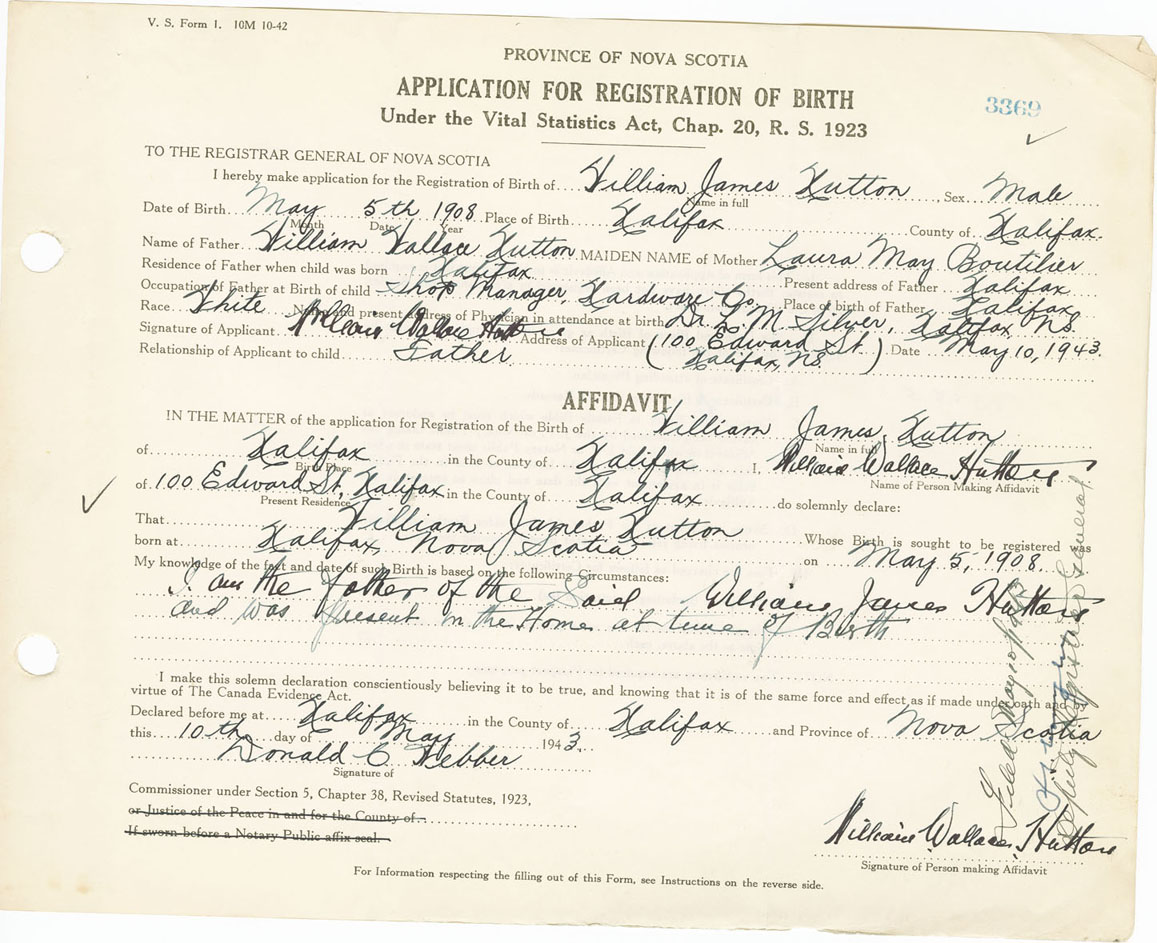 V. S. Form 1. 10M 10-42
PROVINCE OF NOVA SCOTIA
APPLICATION FOR REGISTRATION OF BIRTH
3369
Under the Vital Statistics Act, Chap. 20, R. S. 1923
TO THE REGISTRAR GENERAL OF NOVA SCOTIA
I hereby make application for the Registration of Birth of William James Hutton, Sex Male
Name in full
Date of Birth May 5th 1908 Place of Birth Halifax County of Halifax
Month Date Year
Name of Father William Wallace Hutton MAIDEN NAME of Mother Laura May Boutilier
Residence of Father when child was born Halifax Present address of Father Halifax
Occupation of Father at Birth of child Shop Manager, Hardware Co. Place of birth of Father Halifax
Race White Name and present address of Physician in attendance at birth Dr. L. M. Silver, Halifax, N.S.
Signature of Applicant William Wallace Hutton Address of Applicant (100 Edward St. Halifax, N.S.) Date May 10, 1943.
Relationship of Applicant to child Father
AFFIDAVIT
IN THE MATTER of the application for Registration of the Birth of William James Hutton
Name in full
of Halifax in the County of Halifax I, William Wallace Hutton
Birth Place
Name of Person Making Affidavit
of 100 Edward St., Halifax in the County of Halifax do solemnly declare:
Present Residence
That William James Hutton Whose Birth is sought to be registered was
born at Halifax, Nova Scotia on May 5, 1908
My knowledge of the fact and date of such Birth is based on the following Circumstances:
I am the Father of the Said William James Hutton
and was present in the Home at time of Birth
I make this solemn declaration conscientiously believing it to be true, and knowing that it is of the same force and effect as if made under oath and by
virtue of The Canada Evidence Act.
Declared before me at Halifax in the County of Halifax and Province of Nova Scotia
this 10th day of May 1943.
Donald C Webber
Signature of
Commissioner under Section 5, Chapter 38, Revised Statutes, 1923,
or Justice of the Peace in and for the County of
If sworn before a Notary Public affix seal.
William Wallace Hutton
Signature of Person making Affidavit
For Information respecting the filling out of this Form, see Instructions on the reverse side.
Deputy Registrar General.